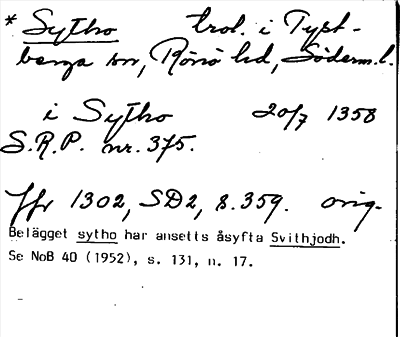 * Sytho trol. i Tyst-
berga sn, Rönö hd, Söderm. l.
i Sytho 20/7 1358
S.R.P. nr. 375.
Jfr 1302, SD2, s. 359. orig.
Belägget sytho har ansetts åsyfta Svithjodh.
Se NoB 40 (1952), s. 131, n. 17.